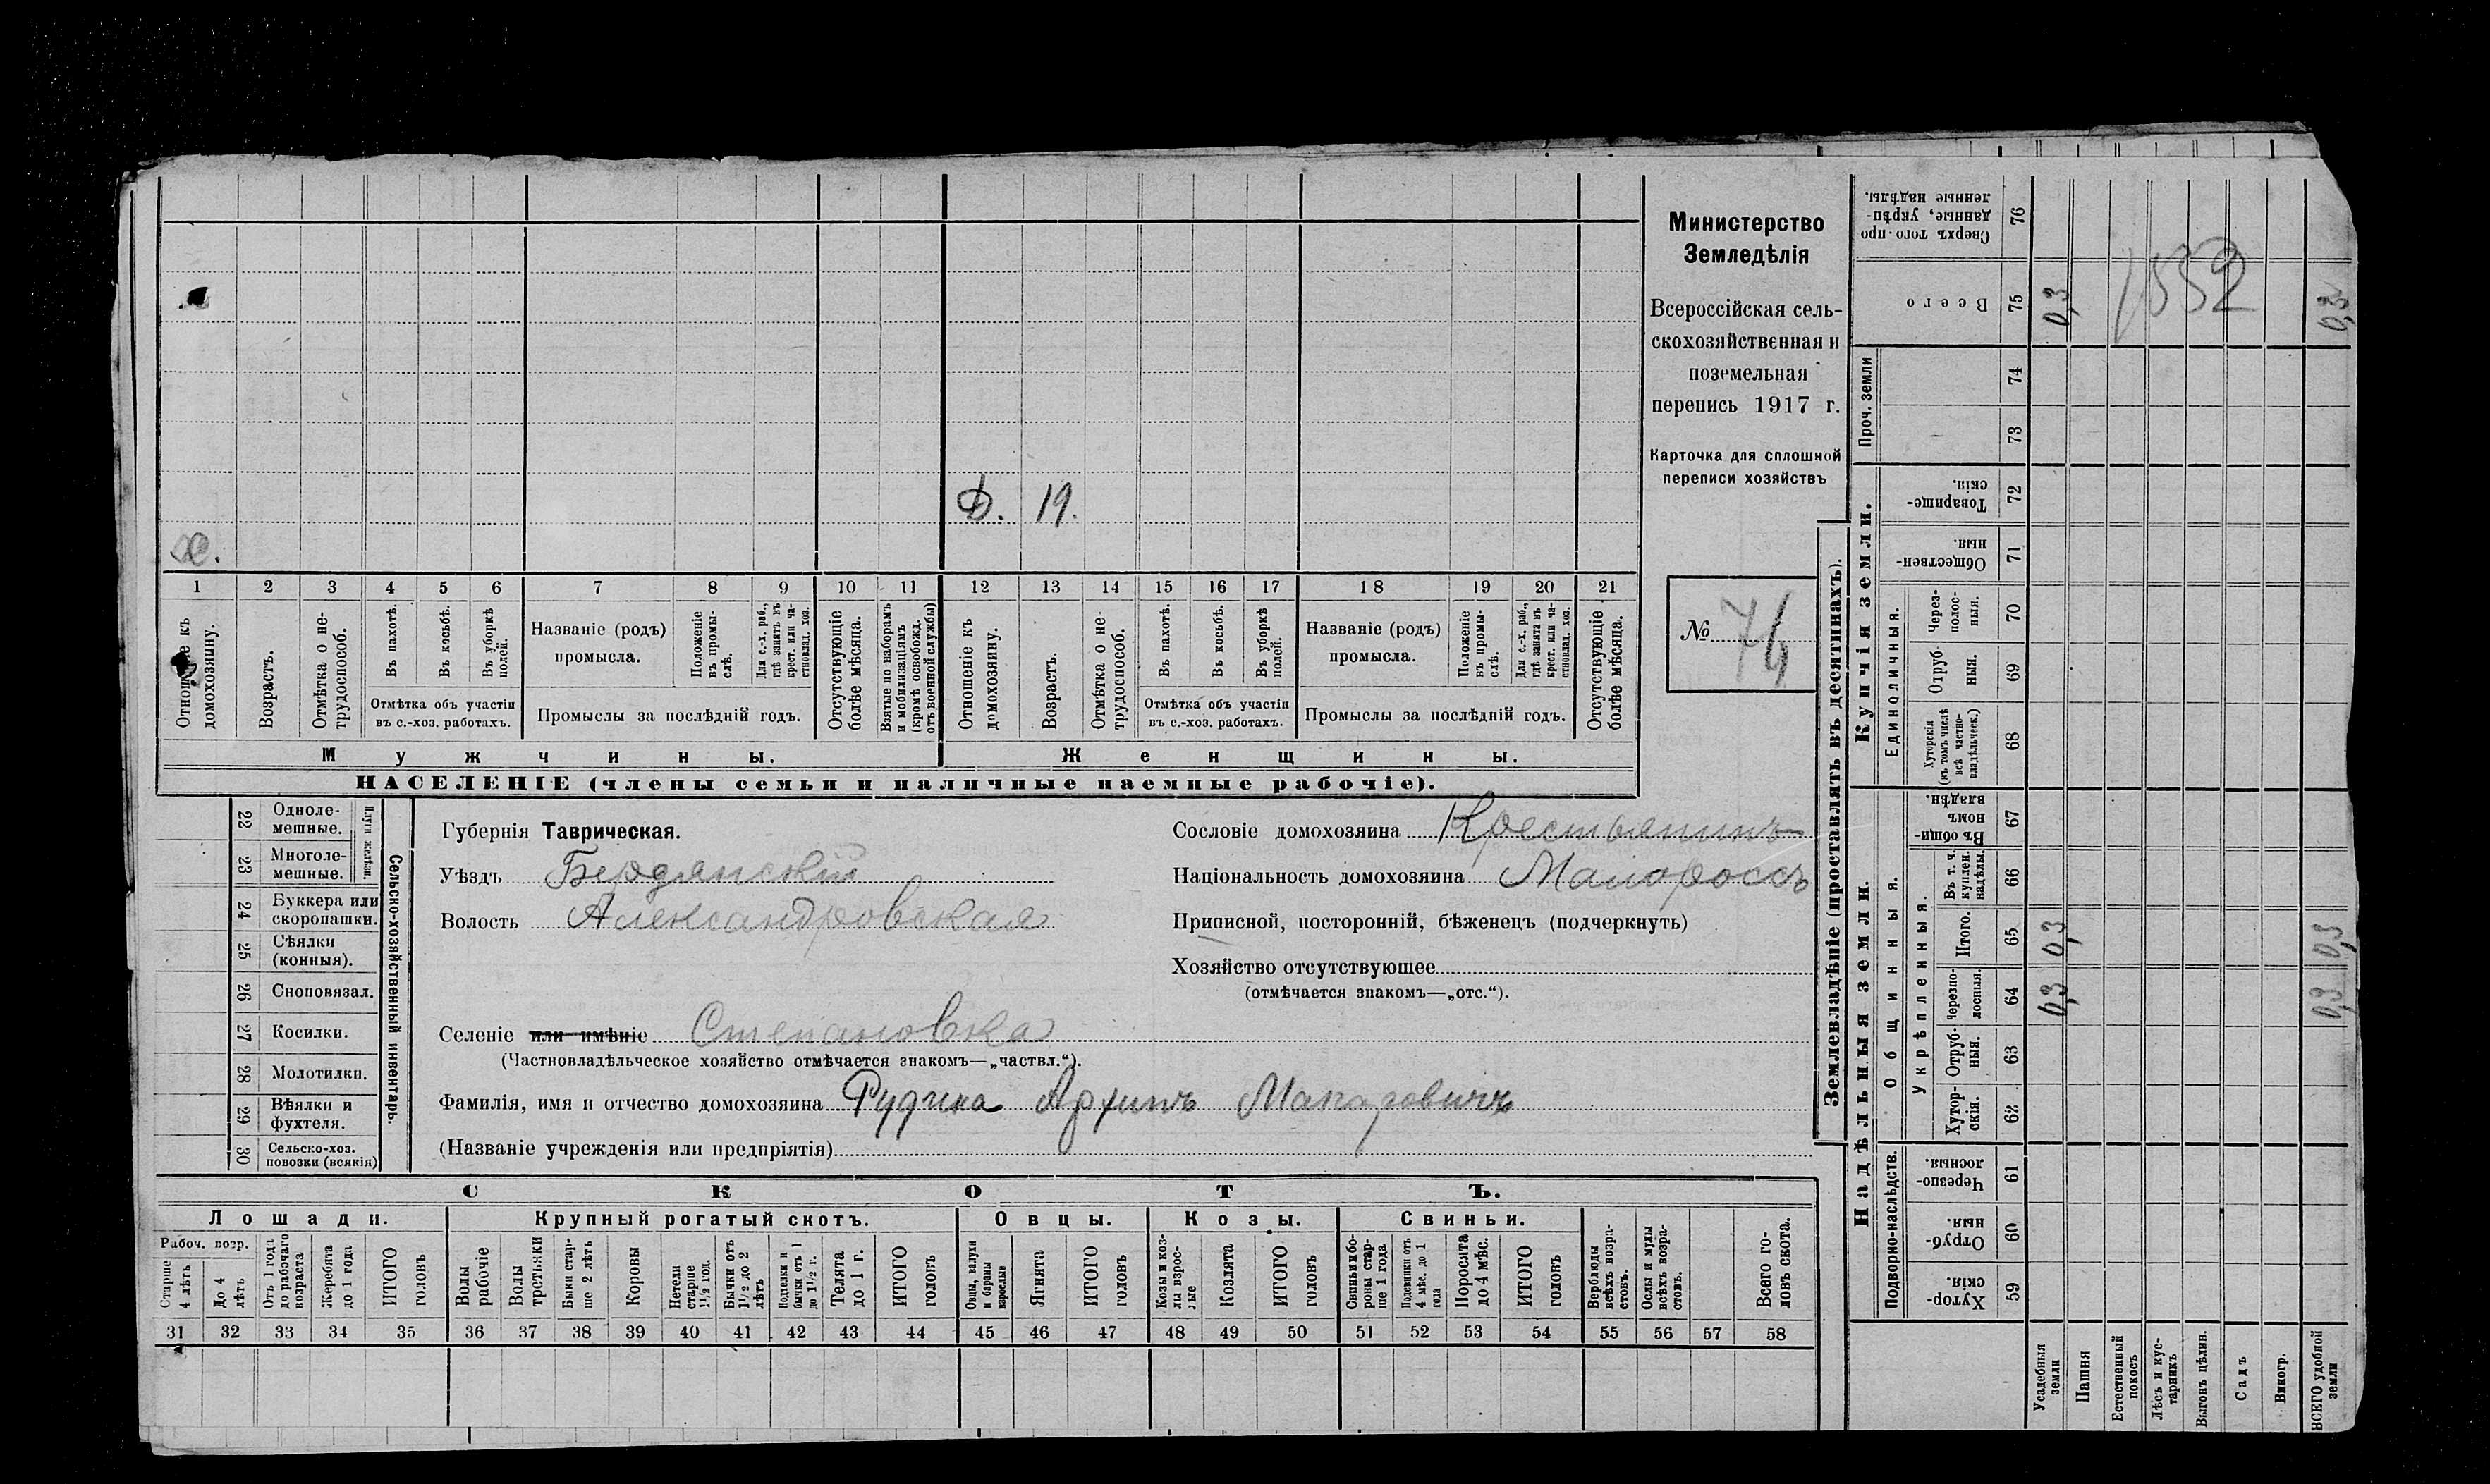 Министерство
Земледѣлія
Всероссійская сель-
скохозяйственная и
поземельная
перепись 1917 г.
Карточка для сплошной
переписи хозяйствъ
№ 74
Ф. 19.
1 2 3 4 5 6 7 8 9 10 11 12 13 14 15 16 17 18 19 20 21
Отношеніе къ домохозяину.
Возрастъ.
Отмѣтка о не-трудоспособ.
Въ пахотѣ.
Въ косьбѣ.
Въ уборкѣ полей.
Отмѣтка объ участіи
въ с.-хоз. работахъ.
Названіе (родъ)
промысла.
Положеніе въ промы-слѣ.
Для с.-х. раб., гдѣ занятъ въ крест. или ча-стновлад. хоз.
Промыслы за послѣдній годъ.
Отсутствующіе болѣе мѣсяца.
Взятые по наборамъ и мобилизаціямъ (кромѣ освобожд. отъ военной службы)
Отношеніе къ домохозяину.
Возрастъ.
Отмѣтка о не-трудоспособ.
Въ пахотѣ.
Въ косьбѣ.
Въ уборкѣ полей.
Отмѣтка объ участіи
въ с.-хоз. работахъ.
Названіе (родъ)
промысла.
Положеніе въ промы-слѣ.
Для с.-х. раб., гдѣ занята въ крест. или ча-стновлад. хоз.
Промыслы за послѣдній годъ.
Отсутствующіе болѣе мѣсяца.
Мужчины.
Женщины.
НАСЕЛЕНІЕ (члены семьи и наличные наемные рабочіе).
22 Одноле-мешные.
23 Многоле-мешные.
Плуги желѣзн.
24 Буккера или скоропашки.
25 Сѣялки (конныя).
26 Сноповязал.
27 Косилки.
28 Молотилки.
29 Вѣялки и фухтеля.
30 Сельско-хоз. повозки (всякія)
Сельско-хозяйственный инвентарь.
Губернія Таврическая.
Уѣздъ Бердянскій
Волость Александровская
Сословіе домохозяина Крестьянинъ
Національность домохозяина Малороссъ
Приписной, посторонній, бѣженецъ (подчеркнуть)
Хозяйство отсутствующее
(отмѣчается знакомъ—„отс.“).
Селеніе или имѣніе Степановка
(Частновладѣльческое хозяйство отмѣчается знакомъ—„частвл.“).
Фамилія, имя и отчество домохозяина Рудика Архипъ Макаровичъ
(Названіе учрежденія или предпріятія)
СКОТЪ.
Лошади.
Крупный рогатый скотъ.
Овцы.
Козы.
Свиньи.
Рабоч. возр.
Старше 4 лѣтъ
До 4 лѣтъ
Отъ 1 года до рабочаго возраста
Жеребята до 1 года
ИТОГО головъ
Волы рабочіе
Волы третьяки
Быки стар-ше 2 лѣтъ
Коровы
Нетели старше 1½ год.
Бычки отъ 1½ до 2 лѣтъ
Подтелки и бычки отъ 1 до 1½ г.
Телята до 1 г.
ИТОГО головъ
Овцы, валухи и бараны взрослые
Ягнята
ИТОГО головъ
Козы и коз-лы взрос-лые
Козлята
ИТОГО головъ
Свиньи и бо-ровы стар-ше 1 года
Подсвинки отъ 4 мѣс. до 1 года
Поросята до 4 мѣс.
ИТОГО головъ
Верблюды всѣхъ возра-стовъ.
Ослы и мулы всѣхъ возра-стовъ.
Всего го-ловъ скота.
31 32 33 34 35 36 37 38 39 40 41 42 43 44 45 46 47 48 49 50 51 52 53 54 55 56 57 58
Землевладѣніе (проставлять въ десятинахъ).
Сверхъ того-про-данные, укрѣп-ленные надѣлы. 76
Всего 75 0,3 0,3
1552
Проч. земли
74
73
Купчія земли.
Товарище-скія. 72
Обществен-ныя. 71
Единоличныя.
Через-полос-ныя. 70
Отруб-ныя. 69
Хуторскія (въ томъ числѣ всѣ частно-владѣльческ.) 68
Надѣльныя земли.
Общинныя.
Въ общи-номъ владѣн. 67
Укрѣпленныя.
Въ т. ч. куплен. надѣлы. 66
Итого. 65 0,3 0,3
Черезпо-лосныя. 64 0,3 0,3
Отруб-ныя. 63
Хутор-скія. 62
Подворно-наслѣдств.
Черезпо-лосныя. 61
Отруб-ныя. 60
Хутор-скія. 59
Усадебныя земли
Пашня
Естественный покосъ
Лѣсъ и кус-тарникъ
Выгонъ цѣлин.
Садъ
Виногр.
ВСЕГО удобной земли